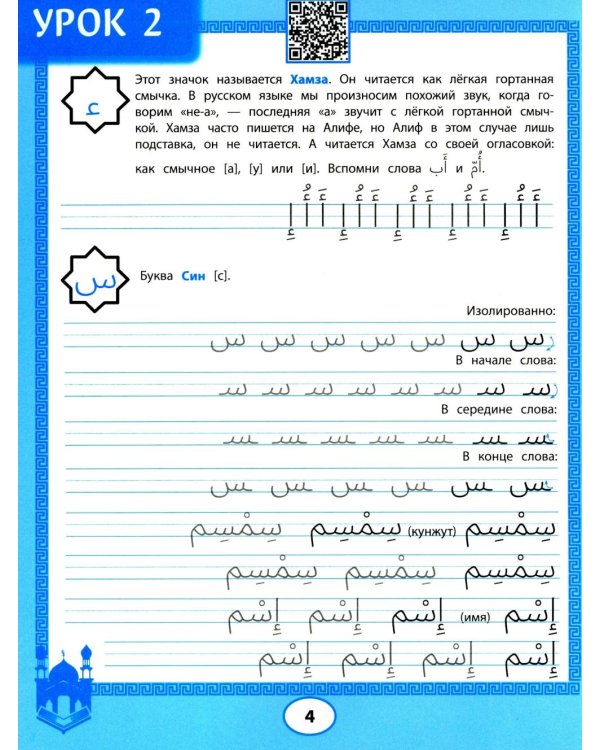 УРОК 2
ء
Этот значок называется Хамза. Он читается как лёгкая гортанная
смычка. В русском языке мы произносим похожий звук, когда го-
ворим «не-а», — последняя «а» звучит с лёгкой гортанной смыч-
кой. Хамза часто пишется на Алифе, но Алиф в этом случае лишь
подставка, он не читается. А читается Хамза со своей огласовкой:
как смычное [а], [у] или [и]. Вспомни слова أَب и أُمّ.
أَ أُ إِ أَ أُ إِ أَ أُ إِ أَ أُ إِ أَ أُ إِ
س
Буква Син [с].
Изолированно:
س س س س س س س
В начале слова:
سـ سـ سـ سـ سـ سـ سـ
В середине слова:
ـسـ ـسـ ـسـ ـسـ ـسـ ـسـ ـسـ
В конце слова:
ـس ـس ـس ـس ـس ـس
سِمْسِم (кунжут) سِمْسِم سِمْسِم
سِمْسِم سِمْسِم سِمْسِم
إِسْم (имя) إِسْم إِسْم إِسْم
إِسْم إِسْم إِسْم إِسْم
4